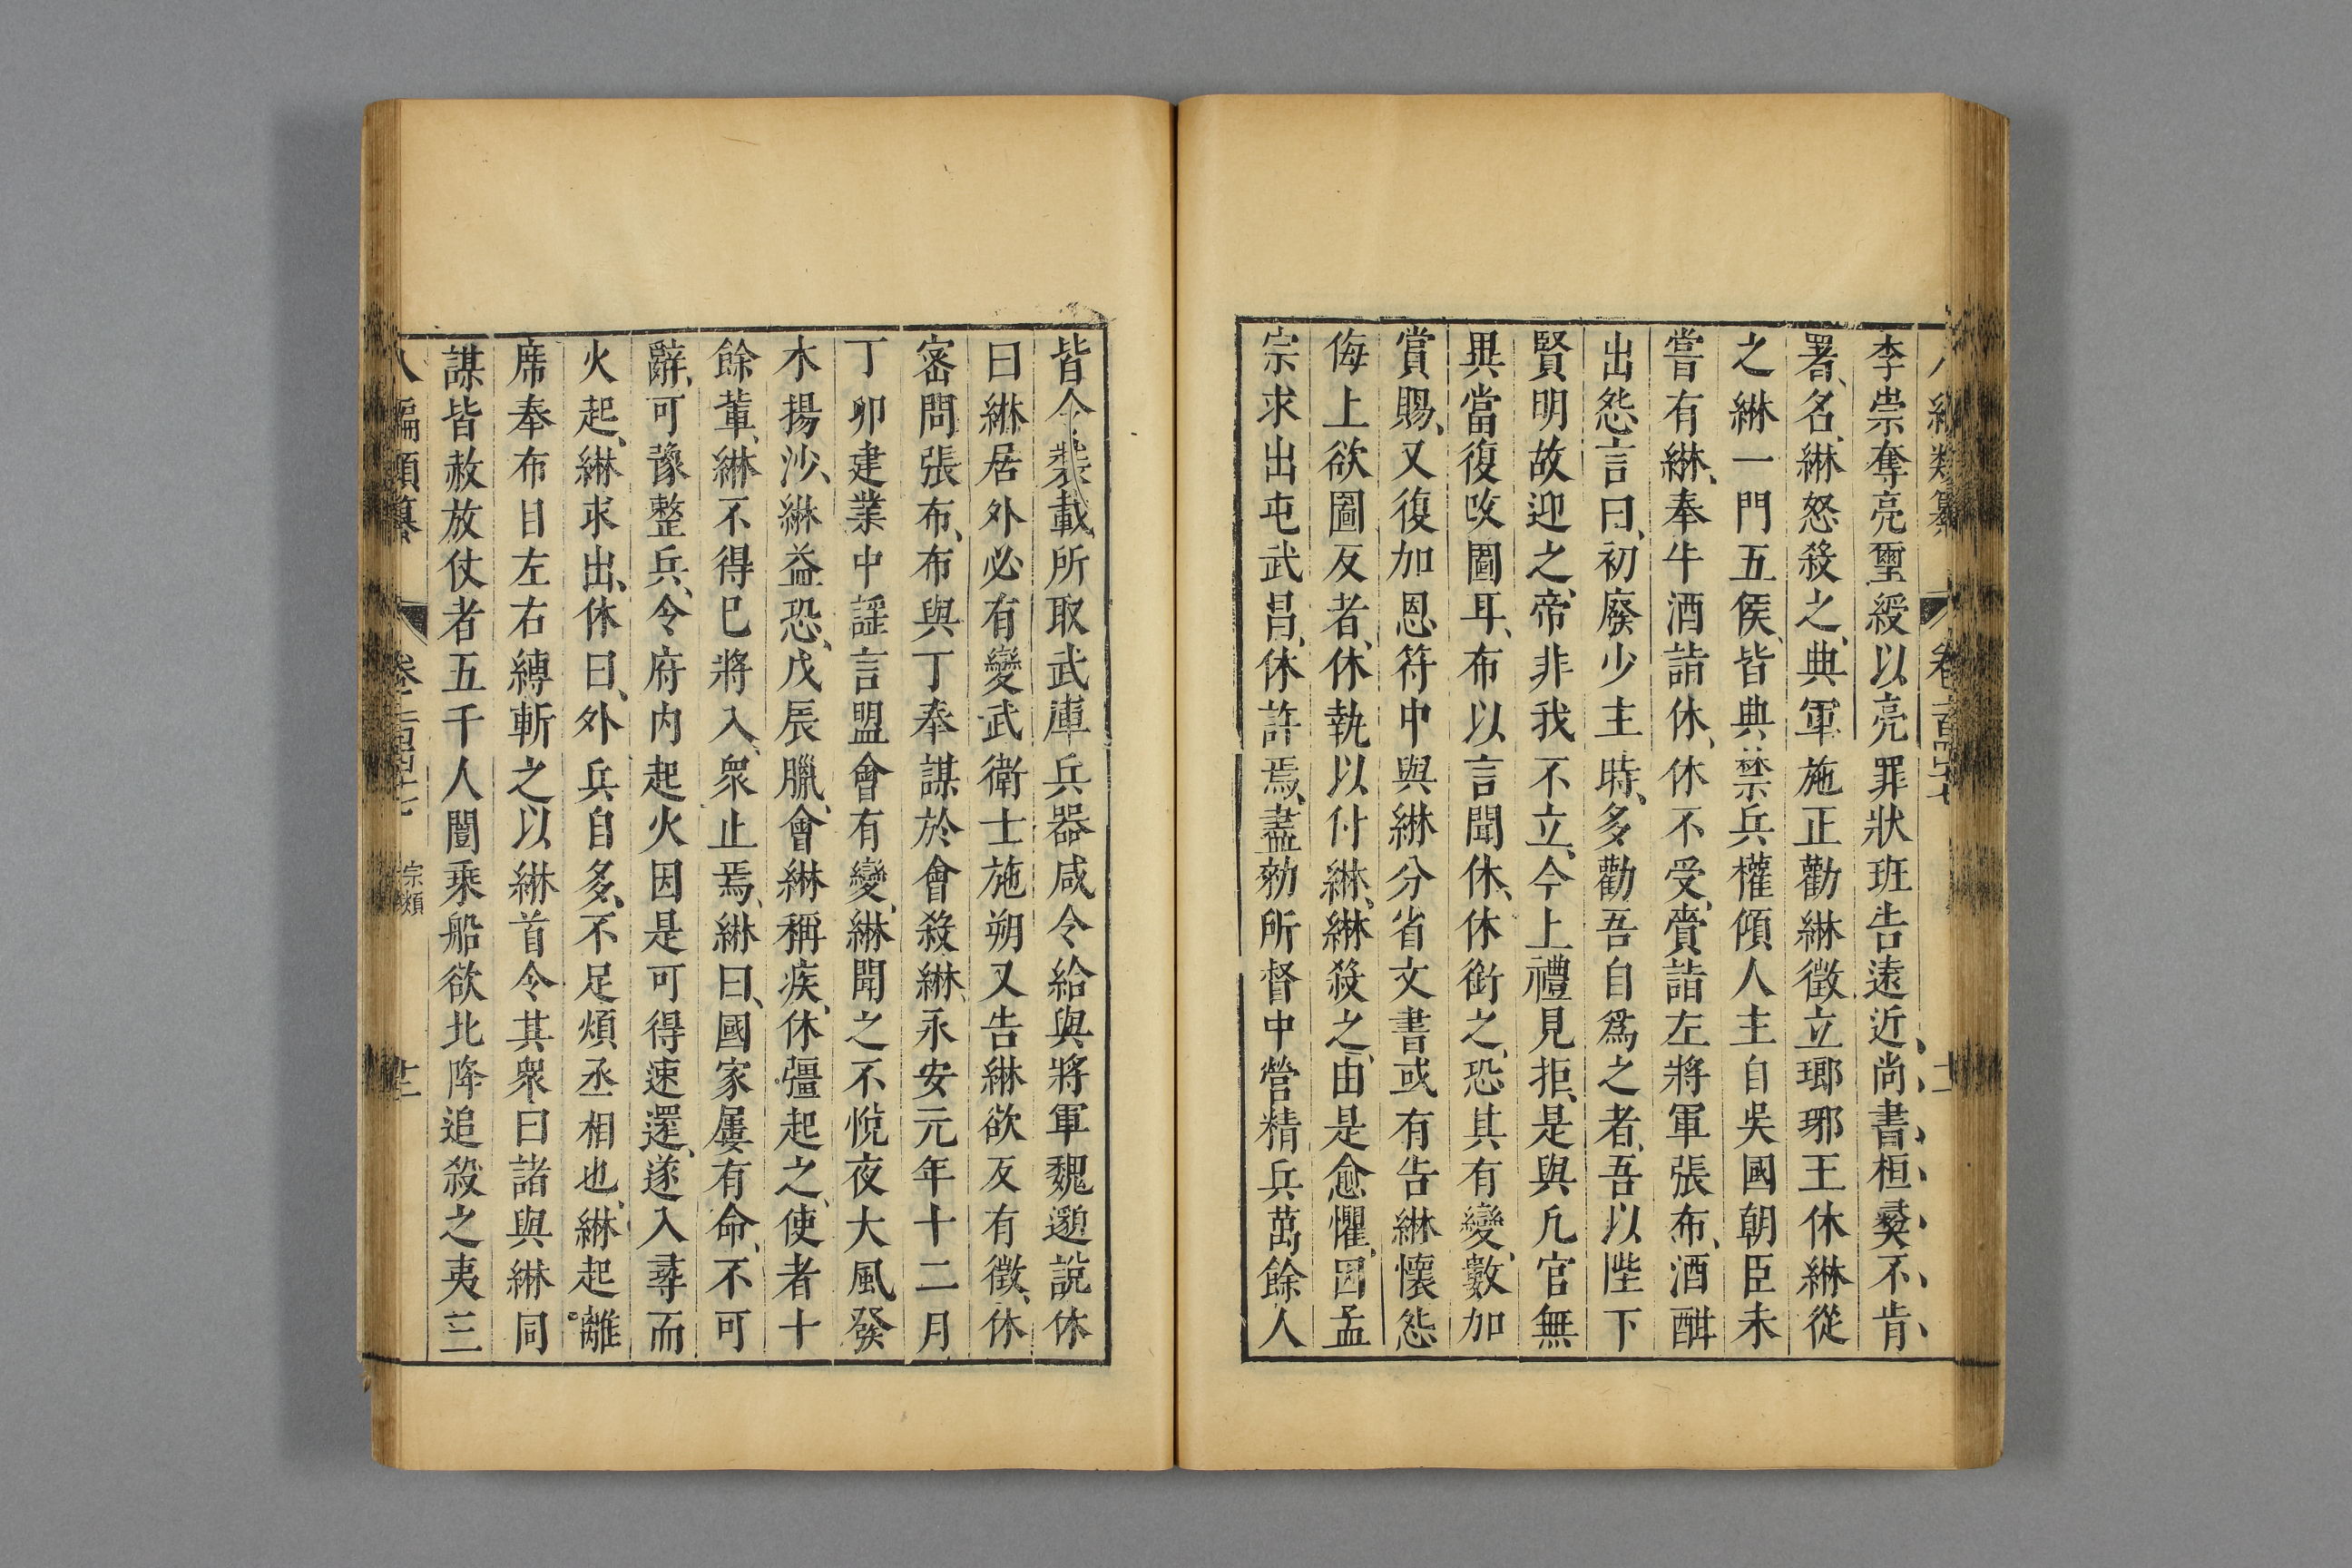 李崇奪亮璽綬以亮罪狀班告遠近、尚書桓彝不肯
署名、綝怒殺之、典軍施正勸綝徵立瑯琊王休綝從
之綝一門五侯、皆典禁兵權傾人主自吳國朝臣未
嘗有綝、奉牛酒詣休、休不受、賫詣左將軍張布、酒酣
出怨言曰、初廢少主時、多勸吾自爲之者、吾以陛下
賢明故迎之、帝非我不立、今上禮見拒、是與凡官無
異當復改圖耳、布以言聞休、休銜之、恐其有變、數加
賞賜、又復加恩符中與綝分省文書或有告綝懷怨
侮上欲圖反者、休執以付綝、綝殺之、由是愈懼、因孟
宗求出屯武昌、休許焉、盡勑所督中營精兵萬餘人
皆令裝載、所取武庫兵器咸令給與將軍魏邈說休
曰綝居外必有變武衛士施朔又告綝欲反有徵、休
密問張布、布與丁奉謀於會殺綝、永安元年十二月
丁卯建業中謡言盟會有變、綝聞之不悅夜大風發
木揚沙、綝益恐、戊辰臘、會綝稱疾、休彊起之、使者十
餘輩、綝不得已將入、衆止焉、綝曰、國家屢有命、不可
辭、可豫整兵、令府内起火因是可得速還、遂入尋而
火起、綝求出、休曰、外兵自多、不足煩丞相也、綝起離
席奉布目左右縛斬之以綝首令其衆曰諸與綝同
謀皆赦放仗者五千人闓乘船欲北降追殺之夷三
八編類纂 卷二百四十七 十二